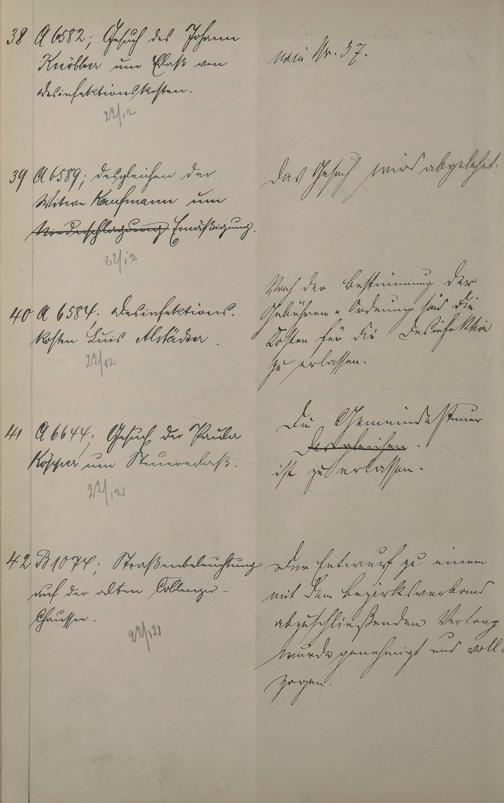 38 A 6582; Gesuch des Johann
Knöbber um Erlaß von
Desinfektionskosten.
22/12
wie Nr. 37.
39 A 6589; desgleichen der
Witwe Kaufmann um
Niederschlagung Ermäßigung.
22/12
Das Gesuch wird abgelehnt.
40 A 6584. Desinfektions-
kosten Luis Alstädter.
22/12
Nach der Bestimmung der
Gebühren-Ordnung sind die
Kosten für die Desinfektion
zu erlassen.
41 A 6644; Gesuch der Paula
um Steuererlaß.
22/12
Die Gemeindesteuer
Desgleichen.
ist zu erlassen.
42 B 1074; Straßenbeleuchtung
auf der alten
Chaussee.
22/12
Der Entwurf zu einem
mit dem Bezirksverband
abzuschließenden Vertrag
wurde genehmigt und voll-
zogen.